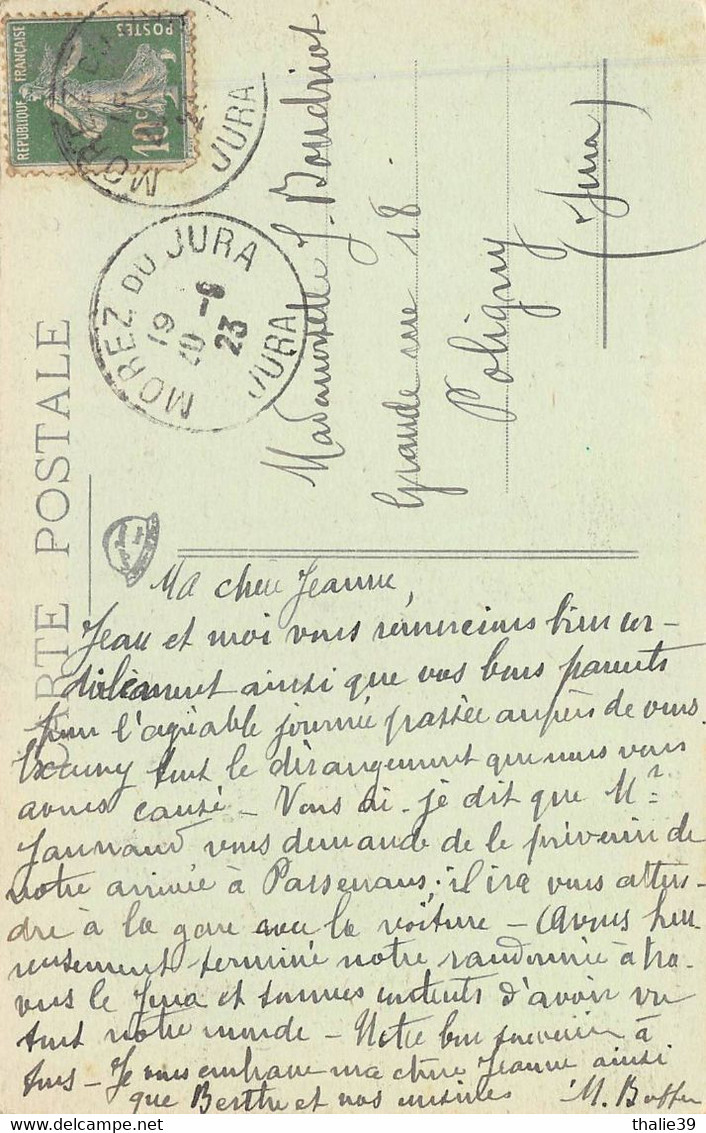 RÉPUBLIQUE FRANÇAISE
POSTES
10c
MOREZ DU JURA
JURA
MOREZ DU JURA
19
19 -9
23
JURA
CARTE POSTALE
Mademoiselle J. Boudriot
Grande rue 18
Poligny
(Jura)
Ma chère Jeanne,
Jean et moi vous remercions bien cor-
dialement ainsi que vos bons parents
pour l'agréable journée passée auprès de vous.
Excusez tout le dérangement que nous vous
avons causé - Vous ai-je dit que Mr
Jannaud vous demande de le prévenir de
notre arrivée à Passenans; il ira vous atten-
dre à la gare avec la voiture - Avons heu-
reusement terminé notre randonnée à tra-
vers le Jura et sommes contents d'avoir vu
tout notre monde - Notre bon souvenir à
tous - Je vous embrasse ma chère Jeanne ainsi
que Berthe et vos cousines M.
thalie39